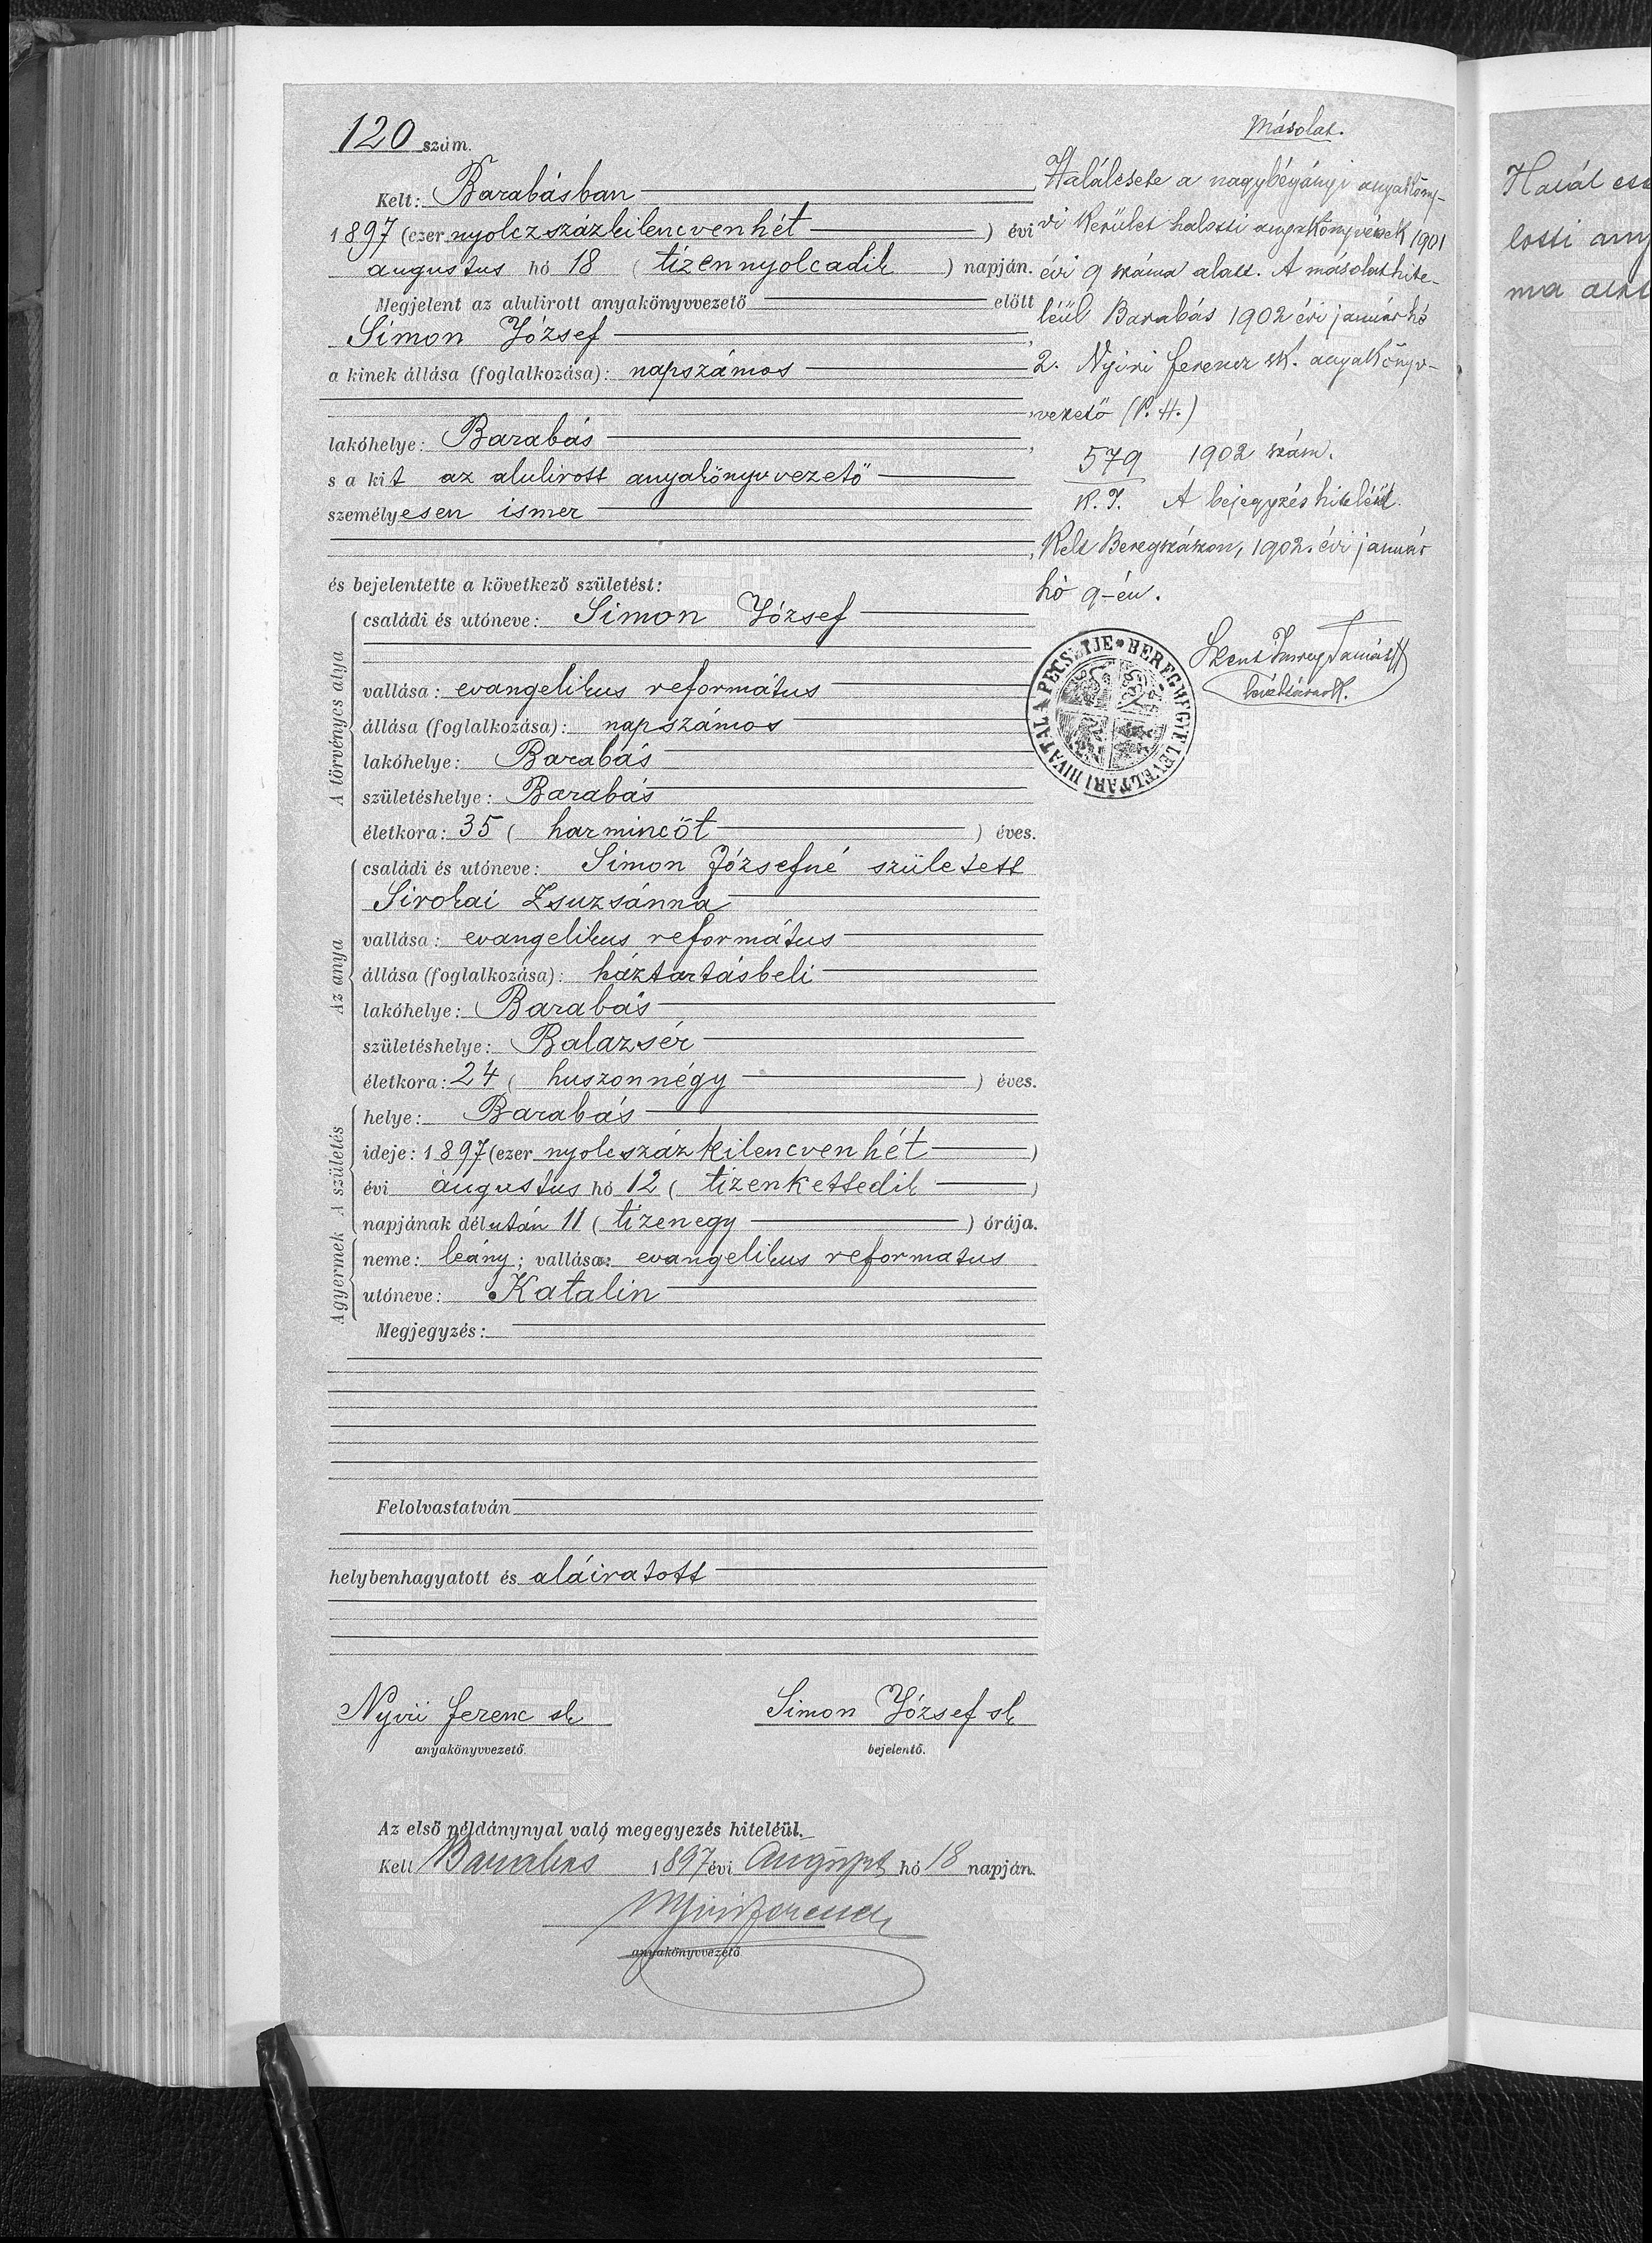 120 szám.
Kelt: Barabásban
1897 (ezer nyolczszázkilencvenhét) évi
augustus hó 18 (tizennyolcadik) napján.
Megjelent az alulirott anyakönyvvezető előtt
Simon József,
a kinek állása (foglalkozása): napszámos
lakóhelye: Barabás,
s a kit az alulirott anyakönyvvezető
személyesen ismer
és bejelentette a következő születést:
A törvényes atya
családi és utóneve: Simon József
vallása: evangelikus református
állása (foglalkozása): napszámos
lakóhelye: Barabás
születéshelye: Barabás
életkora: 35 (harmincöt) éves.
Az anya
családi és utóneve: Simon Józsefné született
Sirokai Zsuzsánna
vallása: evangelikus református
állása (foglalkozása): háztartásbeli
lakóhelye: Barabás
születéshelye: Balazsér
életkora: 24 (huszonnégy) éves.
A születés
helye: Barabás
ideje: 1897 (ezer nyolcszázkilencvenhét)
évi augustus hó 12 (tizenkettedik)
napjának délután 11 (tizenegy) órája.
A gyermek
neme: leány; vallása: evangelikus reformatus
utóneve: Katalin
Megjegyzés:
Felolvastatván
helybenhagyatott és aláiratott
Nyiri Ferenc sk
anyakönyvvezető.
Simon József sk
bejelentő.
Az első példánynyal való megegyezés hiteléül.
Kelt Barabás 1897 évi August hó 18 napján.
Nyiri Ferencz
anyakönyvvezető
Másolat.
Halálesete a nagybégányi anyaköny-
vi kerület halotti anyakönyvének 1901
évi 9 száma alatt. A másolat hite-
léül Barabás 1902 évi január hó
2. Nyiri Ferencz sk. anyakönyv-
vezető (P. H.)
579 1902 szám.
K. I. A bejegyzés hiteléül.
Kelt Beregszászon, 1902. évi január
hó 9-én.
BEREGMEGYE LEVÉLTÁRI HIVATALA PECSÉTJE
Halál ese
losti any
ma alat